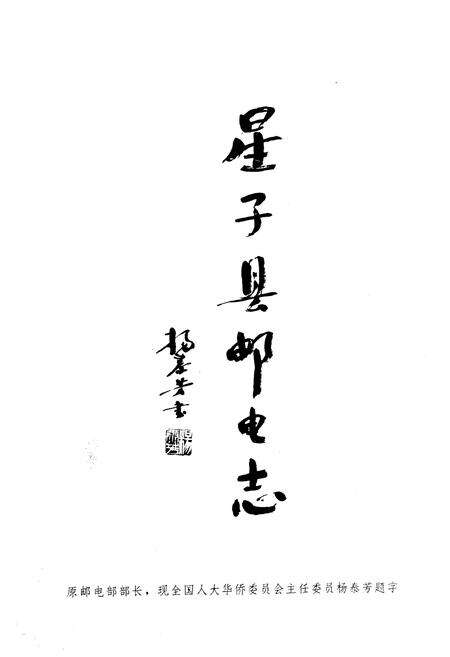 星子县邮电志
杨泰芳书
原邮电部部长，现全国人大华侨委员会主任委员杨泰芳题字